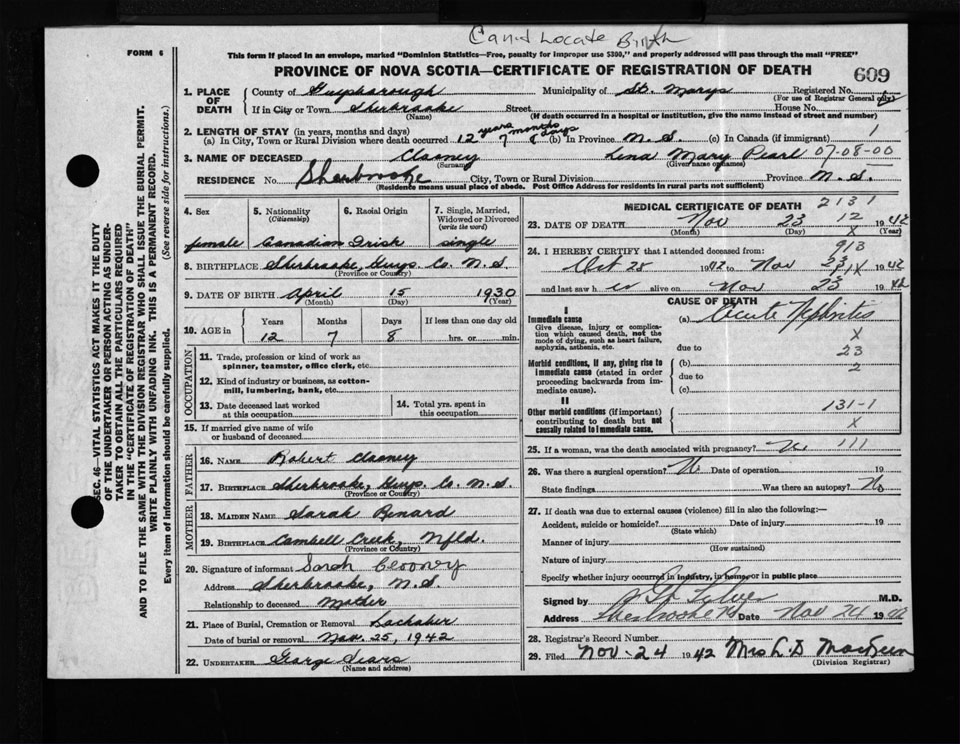 Canot Locate Birth
FORM 6
This form if placed in an envelope, marked "Dominion Statistics—Free, penalty for improper use $300," and properly addressed will pass through the mail "FREE"
PROVINCE OF NOVA SCOTIA—CERTIFICATE OF REGISTRATION OF DEATH
609
SEC. 46—VITAL STATISTICS ACT MAKES IT THE DUTY
OF THE UNDERTAKER OR PERSON ACTING AS UNDER-
TAKER TO OBTAIN ALL THE PARTICULARS REQUIRED
IN THE "CERTIFICATE OF REGISTRATION OF DEATH"
AND TO FILE THE SAME WITH THE DIVISION REGISTRAR WHO SHALL ISSUE THE BURIAL PERMIT.
WRITE PLAINLY WITH UNFADING INK. THIS IS A PERMANENT RECORD.
Every item of information should be carefully supplied. (See reverse side for instructions.)
1. PLACE OF DEATH
County of Guysborough Municipality of St. Marys Registered No.
(For use of Registrar General only)
If in City or Town Sherbrooke Street House No.
(Name) (If death occurred in a hospital or institution, give the name instead of street and number)
2. LENGTH OF STAY (in years, months and days)
(a) In City, Town or Rural Division where death occurred 12 years 7 months 8 days (b) In Province N.S. (c) In Canada (if immigrant) 1
3. NAME OF DECEASED Clooney Lena Mary Pearl 07-08-00
(Surname) (Given name or names)
RESIDENCE No. Sherbrooke City, Town or Rural Division Province N.S.
(Residence means usual place of abode. Post Office Address for residents in rural parts not sufficient)
4. Sex
female
5. Nationality
(Citizenship)
Canadian
6. Racial Origin
Irish
7. Single, Married,
Widowed or Divorced
(write the word)
single
8. BIRTHPLACE Sherbrooke, Guys. Co. N.S.
(Province or Country)
9. DATE OF BIRTH April 15 1930
(Month) (Day) (Year)
10. AGE in
Years Months Days If less than one day old
12 7 8 hrs. or min.
OCCUPATION
11. Trade, profession or kind of work as
spinner, teamster, office clerk, etc.
12. Kind of industry or business, as cotton-
mill, lumbering, bank, etc.
13. Date deceased last worked
at this occupation
14. Total yrs. spent in
this occupation
15. If married give name of wife
or husband of deceased
FATHER
16. NAME Robert Clooney
17. BIRTHPLACE Sherbrooke, Guys. Co. N.S.
(Province or Country)
MOTHER
18. MAIDEN NAME Sarah Renard
19. BIRTHPLACE Cambell Creek, Nfld.
(Province or Country)
20. Signature of informant Sarah Clooney
Address Sherbrooke, N.S
Relationship to deceased Mother
21. Place of Burial, Cremation or Removal Lochaber
Date of burial or removal Nov. 25, 1942
22. UNDERTAKER George Sears
(Name and address)
MEDICAL CERTIFICATE OF DEATH 2131
23. DATE OF DEATH Nov 23 12 1942
(Month) (Day) X (Year)
24. I HEREBY CERTIFY that I attended deceased from: 913
Oct 28 1942 to Nov 23 1942
and last saw her alive on Nov 23 1942
CAUSE OF DEATH
I
Immediate cause
Give disease, injury or complica-
tion which caused death, not the
mode of dying, such as heart failure,
asphyxia, asthenia, etc.
(a) Acute Nephritis
X
due to 23
Morbid conditions, if any, giving rise to
immediate cause (stated in order
proceeding backwards from im-
mediate cause).
(b) 2
due to
(c)
II
Other morbid conditions (if important)
contributing to death but not
causally related to immediate cause.
131-1
X
25. If a woman, was the death associated with pregnancy? No 111
26. Was there a surgical operation? No Date of operation 19
State findings Was there an autopsy? No
27. If death was due to external causes (violence) fill in also the following:—
Accident, suicide or homicide? Date of injury 19
(State which)
Manner of injury
(How sustained)
Nature of injury
Specify whether injury occurred in industry, in home, or in public place
Signed by M.D.
Address Sherbrooke NS Date Nov 24 1942
28. Registrar's Record Number
29. Filed Nov-24 1942 Mrs L. D MacKeen
(Division Registrar)